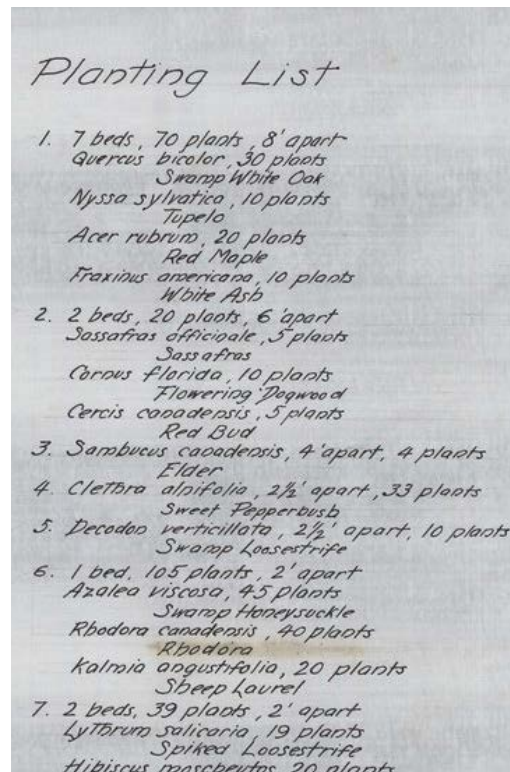 Planting List
1. 7 beds, 70 plants, 8' apart
Quercus bicolor, 30 plants
Swamp White Oak
Nyssa sylvatica, 10 plants
Tupelo
Acer rubrum, 20 plants
Red Maple
Fraxinus americana, 10 plants
White Ash
2. 2 beds, 20 plants, 6' apart
Sassafras officinale, 5 plants
Sassafras
Cornus florida, 10 plants
Flowering Dogwood
Cercis canadensis, 5 plants
Red Bud
3. Sambucus canadensis, 4' apart, 4 plants
Elder
4. Clethra alnifolia, 2½' apart, 33 plants
Sweet Pepperbush
5. Decodon verticillata, 2½' apart, 10 plants
Swamp Loosestrife
6. 1 bed, 105 plants, 2' apart
Azalea viscosa, 45 plants
Swamp Honeysuckle
Rhodora canadensis, 40 plants
Rhodora
Kalmia angustifolia, 20 plants
Sheep Laurel
7. 2 beds, 39 plants, 2' apart
Lythrum salicaria, 19 plants
Spiked Loosestrife
Hibiscus moscheutos, 20 plants